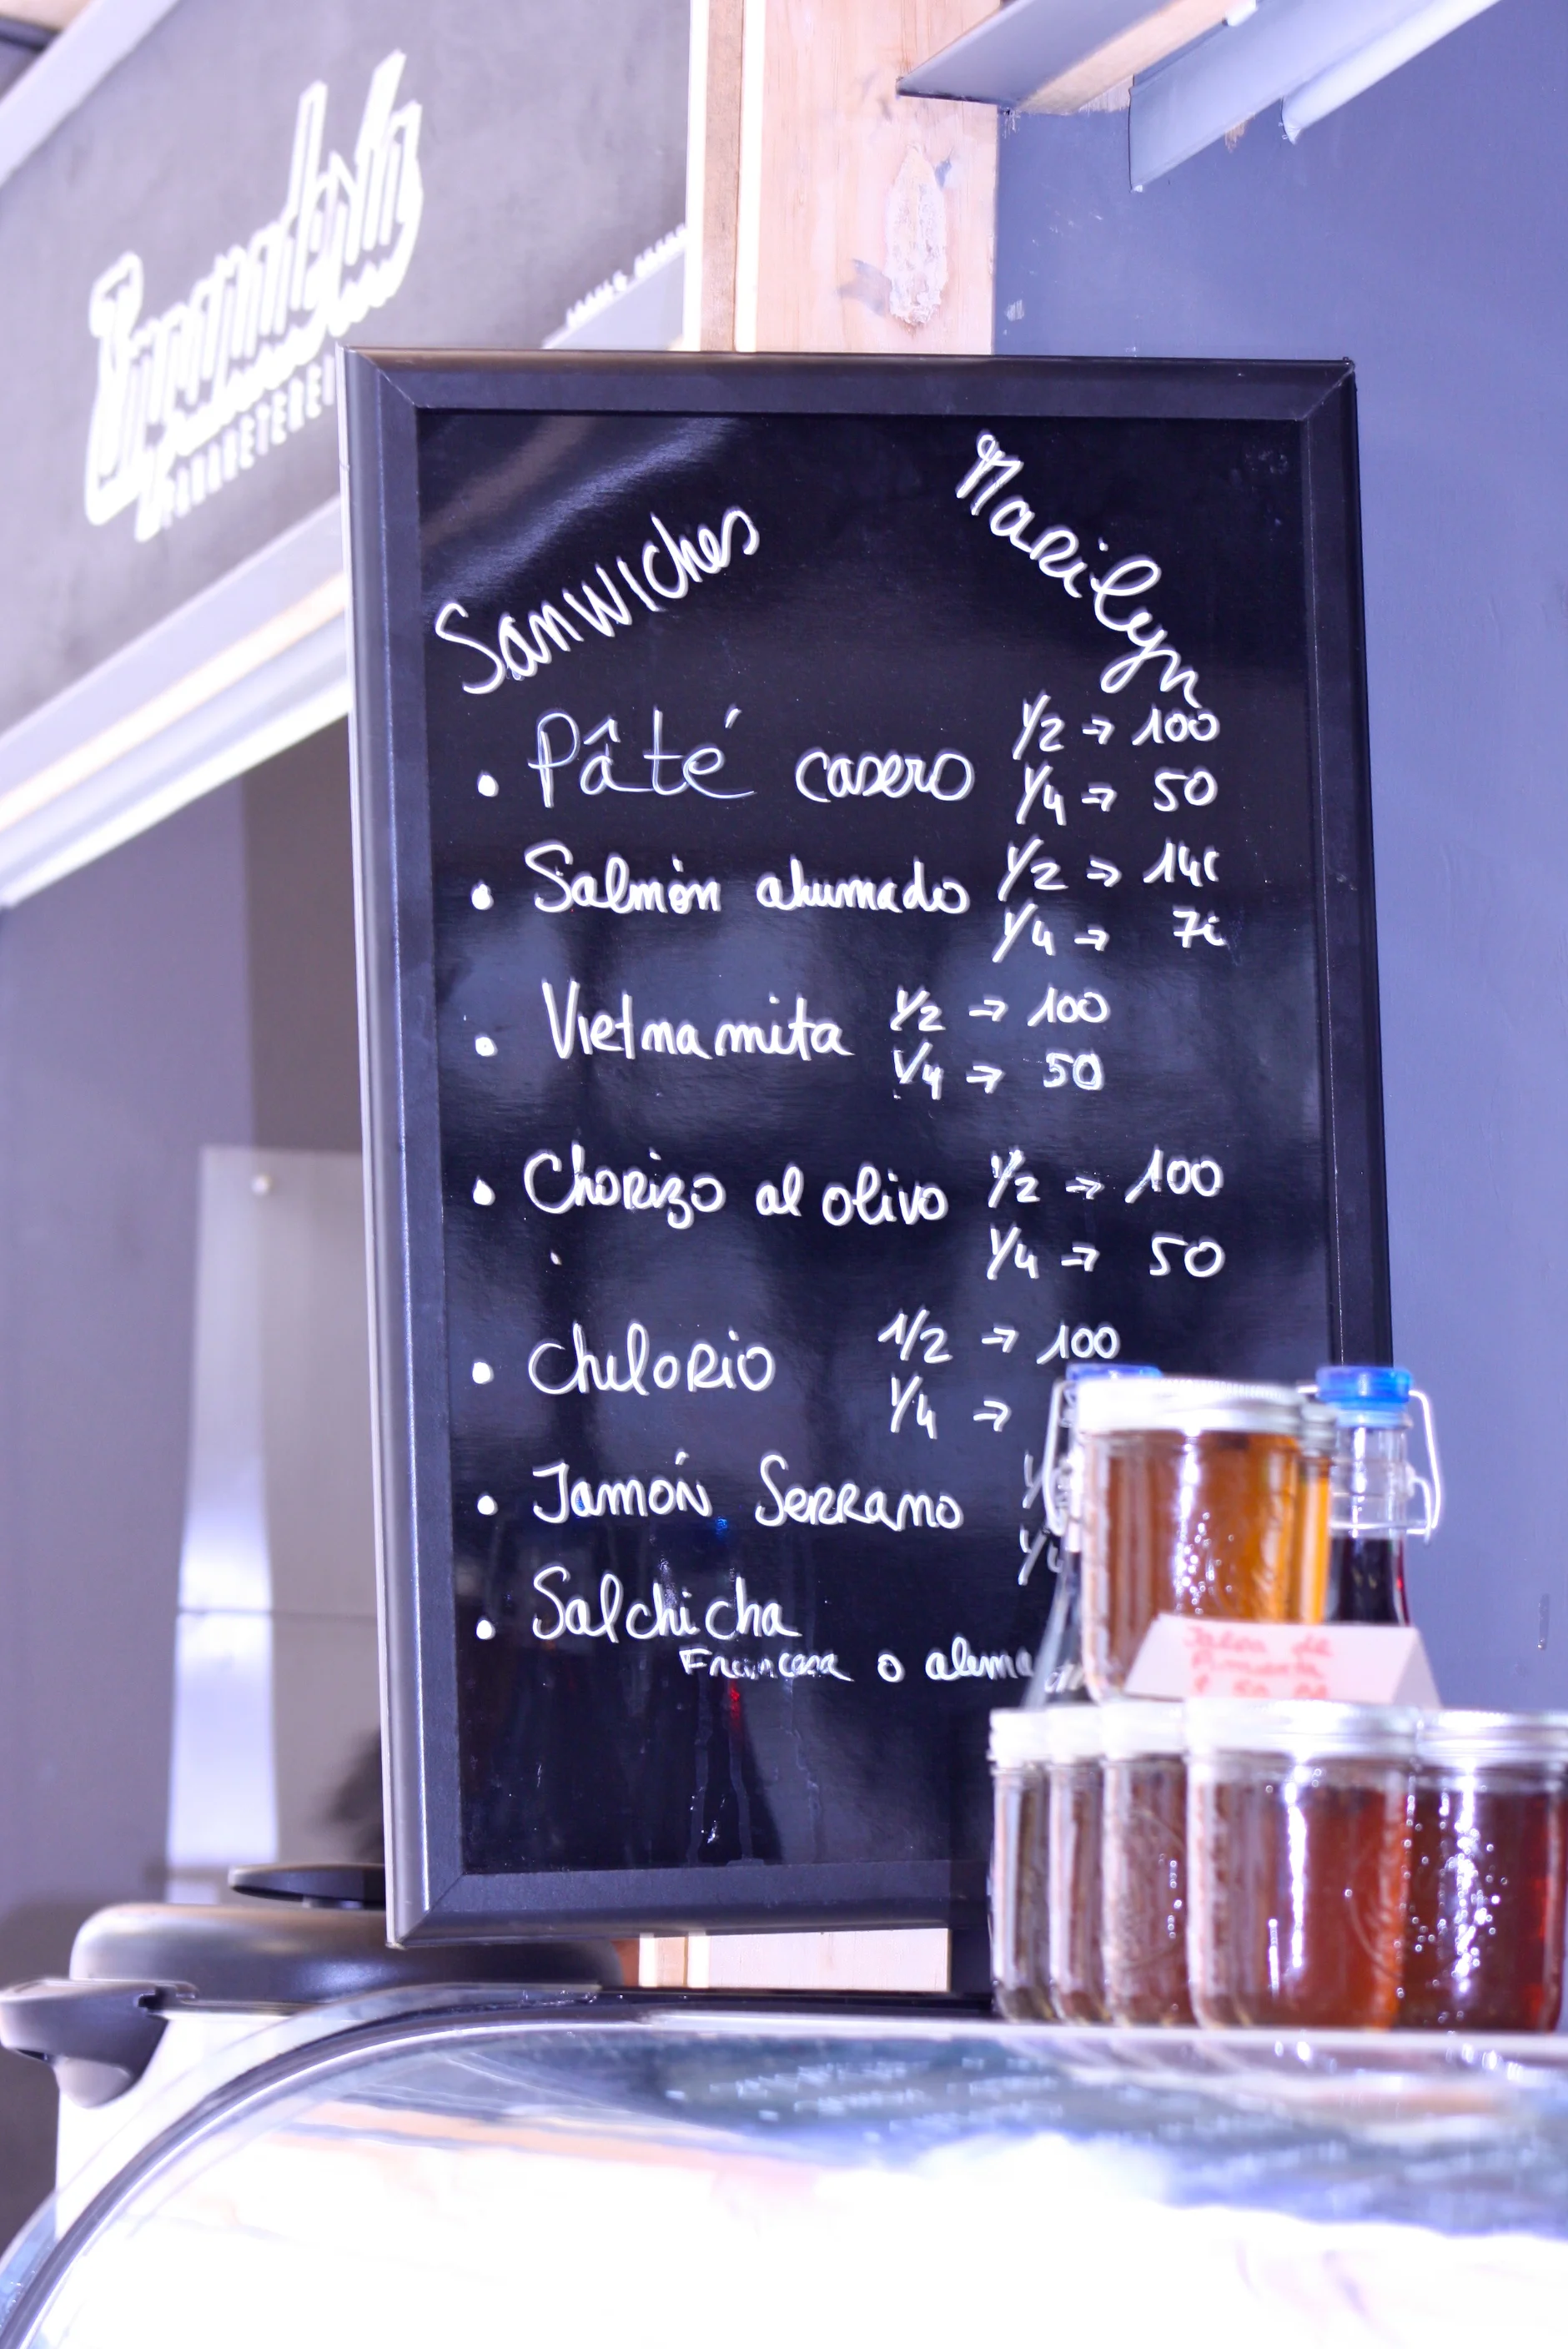 Sanwiches Marilyn
• Pâté casero 1/2 → 100
1/4 → 50
• Salmón ahumado 1/2 →
1/4 →
• Vietnamita 1/2 → 100
1/4 → 50
• Chorizo al olivo 1/2 → 100
1/4 → 50
• Chilorio 1/2 → 100
1/4 →
• Jamón Serrano
• Salchicha
Francesa o alema